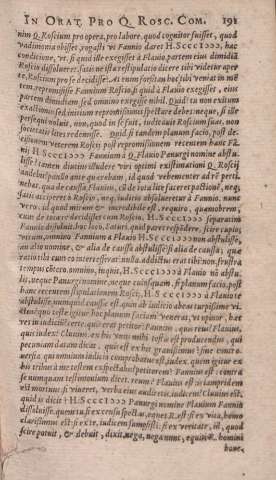 IN ORAT. PRO Q. ROSC. COM. 191
nim Q. Roscium pro opera, pro labore, quod cognitor fuisset, quod
vadimonia obisset, rogasti vt Fannio daret HSCCCIƆƆƆ, hac
conditione, vt, si quid ille exegisset à Flauio, partem eius dimidiã
Roscio dissolueret. satis ne ista stipulatio dicere tibi videtur aper
te, Roscium pro se decidisse? At enim forsitan hoc tibi veniat in mẽ
tem, repromisisse Fannium Roscio, si quid à Flauio exegisset, eius
partem dimidiam sed omnino exegisse nihil. Quid? tu non exitum
exactionis sed initium repromissionis spectare debes neque, si ille
persequi noluit, non, quod in se fuit, iudicauit Roscium suas, non
societatis lites redemisse. Quid si tandem planum facio, post de
cisionem veterem Rosci post repromissionem recentem hanc Fã
ni HSCCCIƆƆƆ Fannium à Q. Flauio Panurgi nomine abstu
lisse? tamen diutius illudere viri optimi existimationi Q. Roscij
audebit? paullo ante quærebam, id quod vehementer ad rẽ perti-
nebat, qua de causa Flauium, cũ de tota lite faceret pactionẽ, neq;
satis acciperet à Roscio, neq; iudicio absolueretur à Fannio. nunc
vero, id quod mirum & incredibile est, requiro, quamobrem,
cum de tota re decidisset cum Roscio, HSCCCIƆƆƆ separatim
Fannio dissoluit. hoc loco, Saturi, quid pares respondere, scire cupio,
vtrum, omnino Fannium à Flauio HSCCCIƆƆƆ non abstulisse,
an alio nomine, & alia de causa abstulisse? si alia de causa, quæ
ratio tibi cum eo intercesserat? nulla. addictus erat tibi? non. frustra
tempus tero. omnino, inquit, HSCCCIƆƆƆ à Flauio nõ abstu-
lit, neque Panurgi nomine, neque cuiusquam. si planum facio, post
hanc recentem stipulationem Rosci, HSCCCIƆƆƆ à Flauio te
abstulisse, numquid causæ est, quin ab iudicio abeas turpissime vi-
ctus? quo teste igitur hoc planum faciam? venerat, vt opinor, hæc
res in iudicium. certe. quis erat petitor? Fannius. quis reus? Flauius.
quis iudex? Cluuius. ex his vnus mihi testis est producendus, qui
pecuniam datam dicat. quis est ex his grauissimus? sine contro-
uersia qui omnium iudicio comprobatus est, iudex. quem igitur ex
his tribus à me testem expectabis? petitorem? Fannius est: contra
se numquam testimonium dicet. reum? Flauius est. is iampridem
est mortuus: si viueret, verba eius audiretis. iudicem? Cluuius est.
quid is dicit? HSCCCIƆƆƆ Panurgi nomine Flauium Fannio
dissoluisse. quem tu si ex censu spectas, eques R. est: si ex vita, homo
clarissimus est: si ex te, iudicem sumpsisti: si ex veritate, id, quod
scire potuit, & debuit, dixit. nega, nega nunc, equiti R. homini
hone-